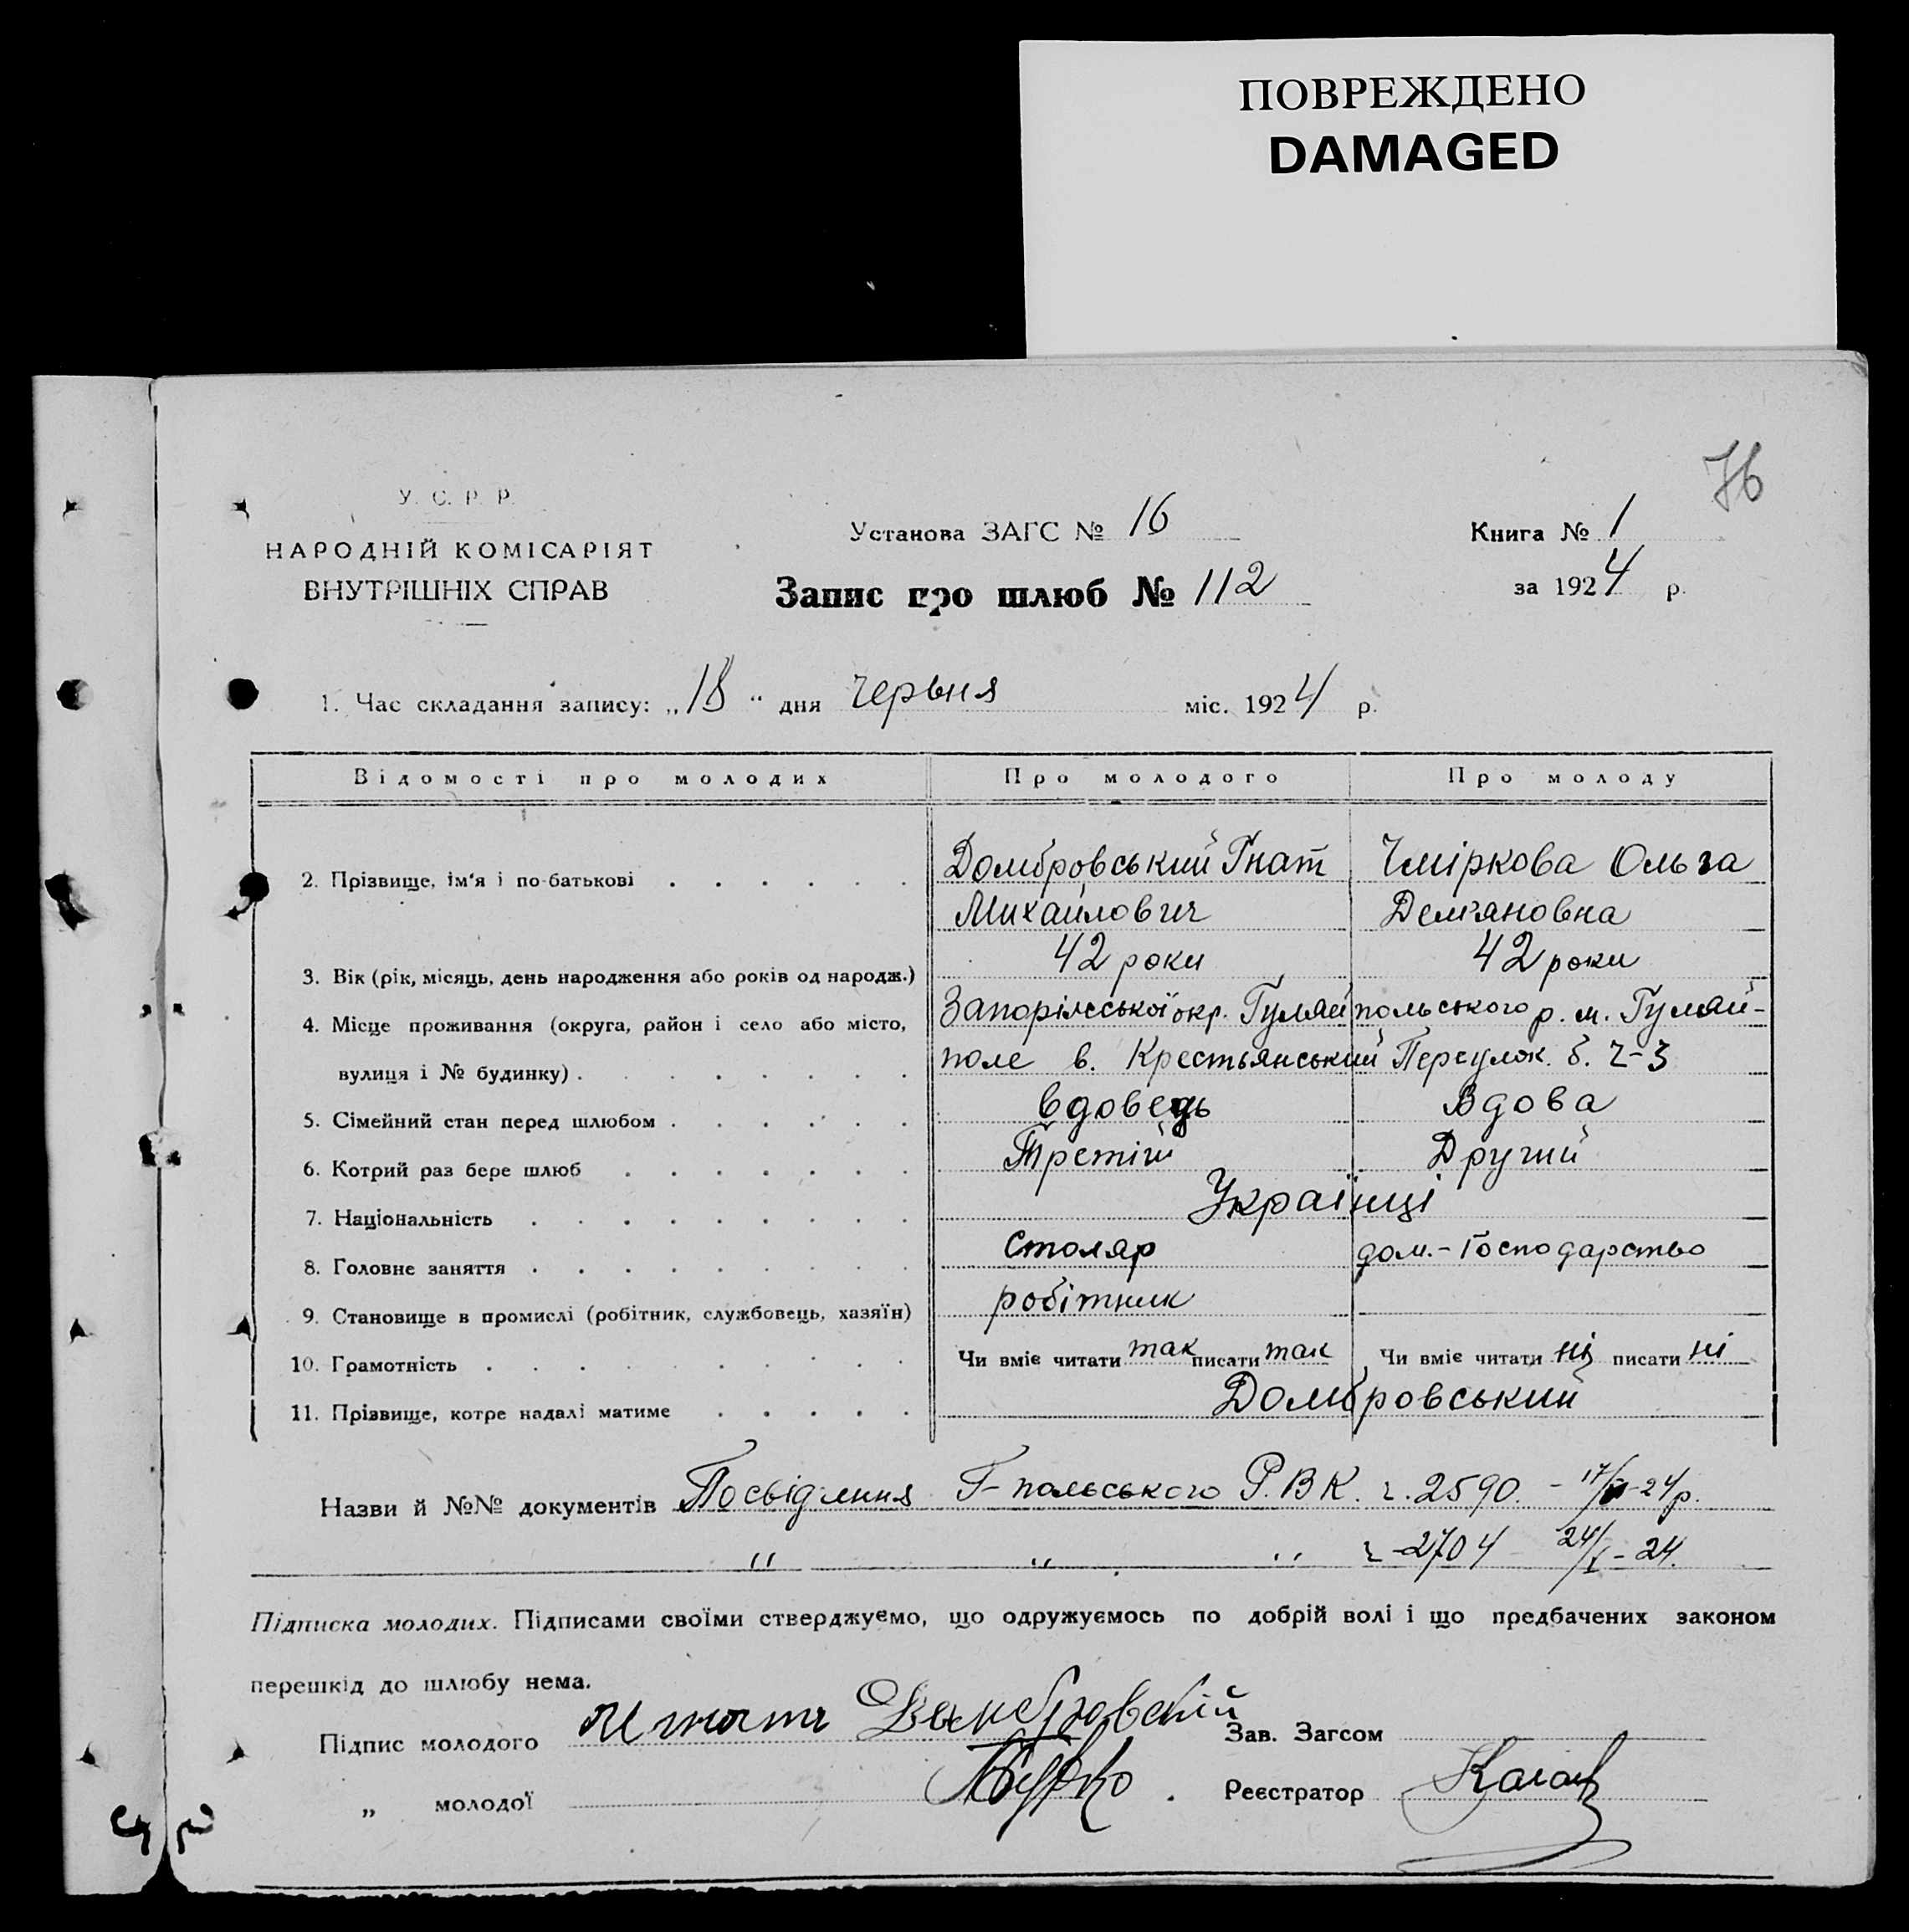 ПОВРЕЖДЕНО
DAMAGED
76
У. С. Р. Р.
НАРОДНІЙ КОМІСАРІЯТ
ВНУТРІШНІХ СПРАВ
Установа ЗАГС № 16
Книга № 1
Запис про шлюб № 112
за 1924 р.
1. Час складання запису: „18“ дня червня міс. 1924 р.
Відомості про молодих Про молодого Про молоду
2. Прізвище, ім'я і по-батькові Домбровський Гнат Чміркова Ольга
Михайлович Демяновна
3. Вік (рік, місяць, день народження або років од народж.) 42 роки 42 роки
4. Місце проживання (округа, район і село або місто, Запоріжської окр. Гуляйпольського р. м. Гуляй-
вулиця і № будинку) поле в. Крестьянський Переулок. б. ч-3
5. Сімейний стан перед шлюбом вдовець Вдова
6. Котрий раз бере шлюб Третій Другий
7. Національність Українці
8. Головне заняття Столяр дом.-Господарство
9. Становище в промислі (робітник, службовець, хазяїн) робітник
10. Грамотність Чи вміє читати так писати так Чи вміє читати ні писати ні
11. Прізвище, котре надалі матиме Домбровський
Назви й №№ документів Посвідчення Г-польського Р.В.К. ч. 2590. - 17/ -24р.
" " " ч-2704 24/ - 24.
Підписка молодих. Підписами своїми стверджуємо, що одружуємось по добрій волі і що предбачених законом
перешкід до шлюбу нема.
Підпис молодого Игнатъ Домбровскій Зав. Загсом
„ молодої Реєстратор